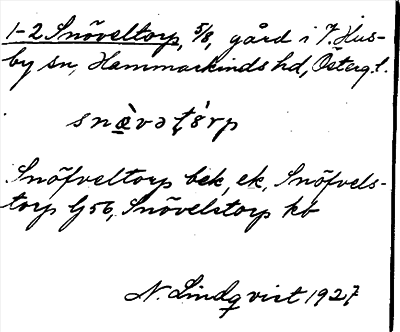 1-2 Snöveltorp, 5/8, gård i V. Hus-
by sn, Hammarkinds hd, Österg.l.
snæ̀vətórp
Snöfveltorp bek, ek, Snöfvels-
torp Gj 56, Snövelstorp kb
N. Lindqvist 1927